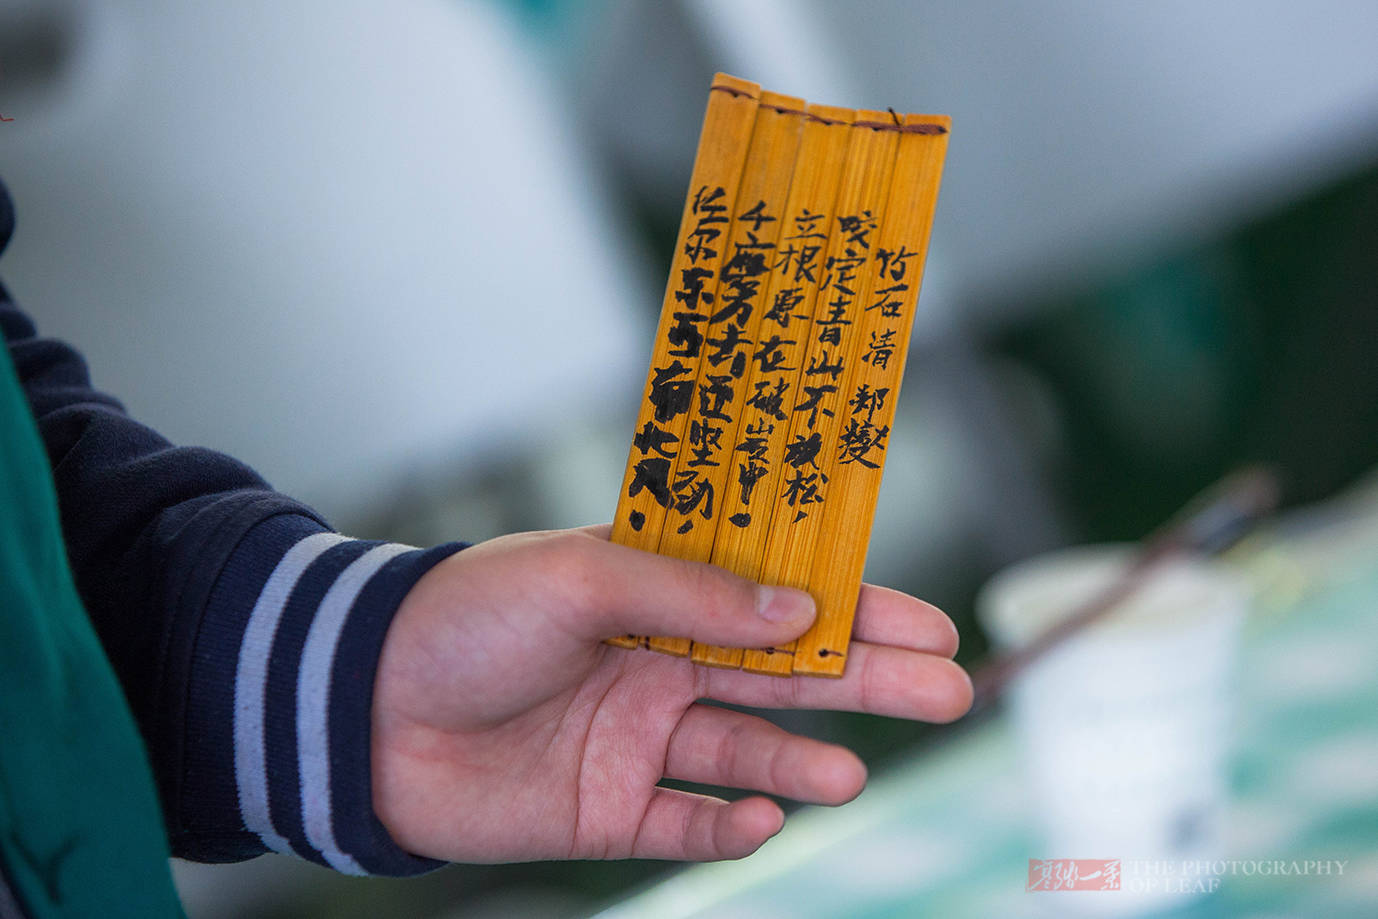 竹石 清 郑燮
咬定青山不放松，
立根原在破岩中。
千磨万去还坚劲，
任尔东西南北风。
THE PHOTOGRAPHY
OF LEAF